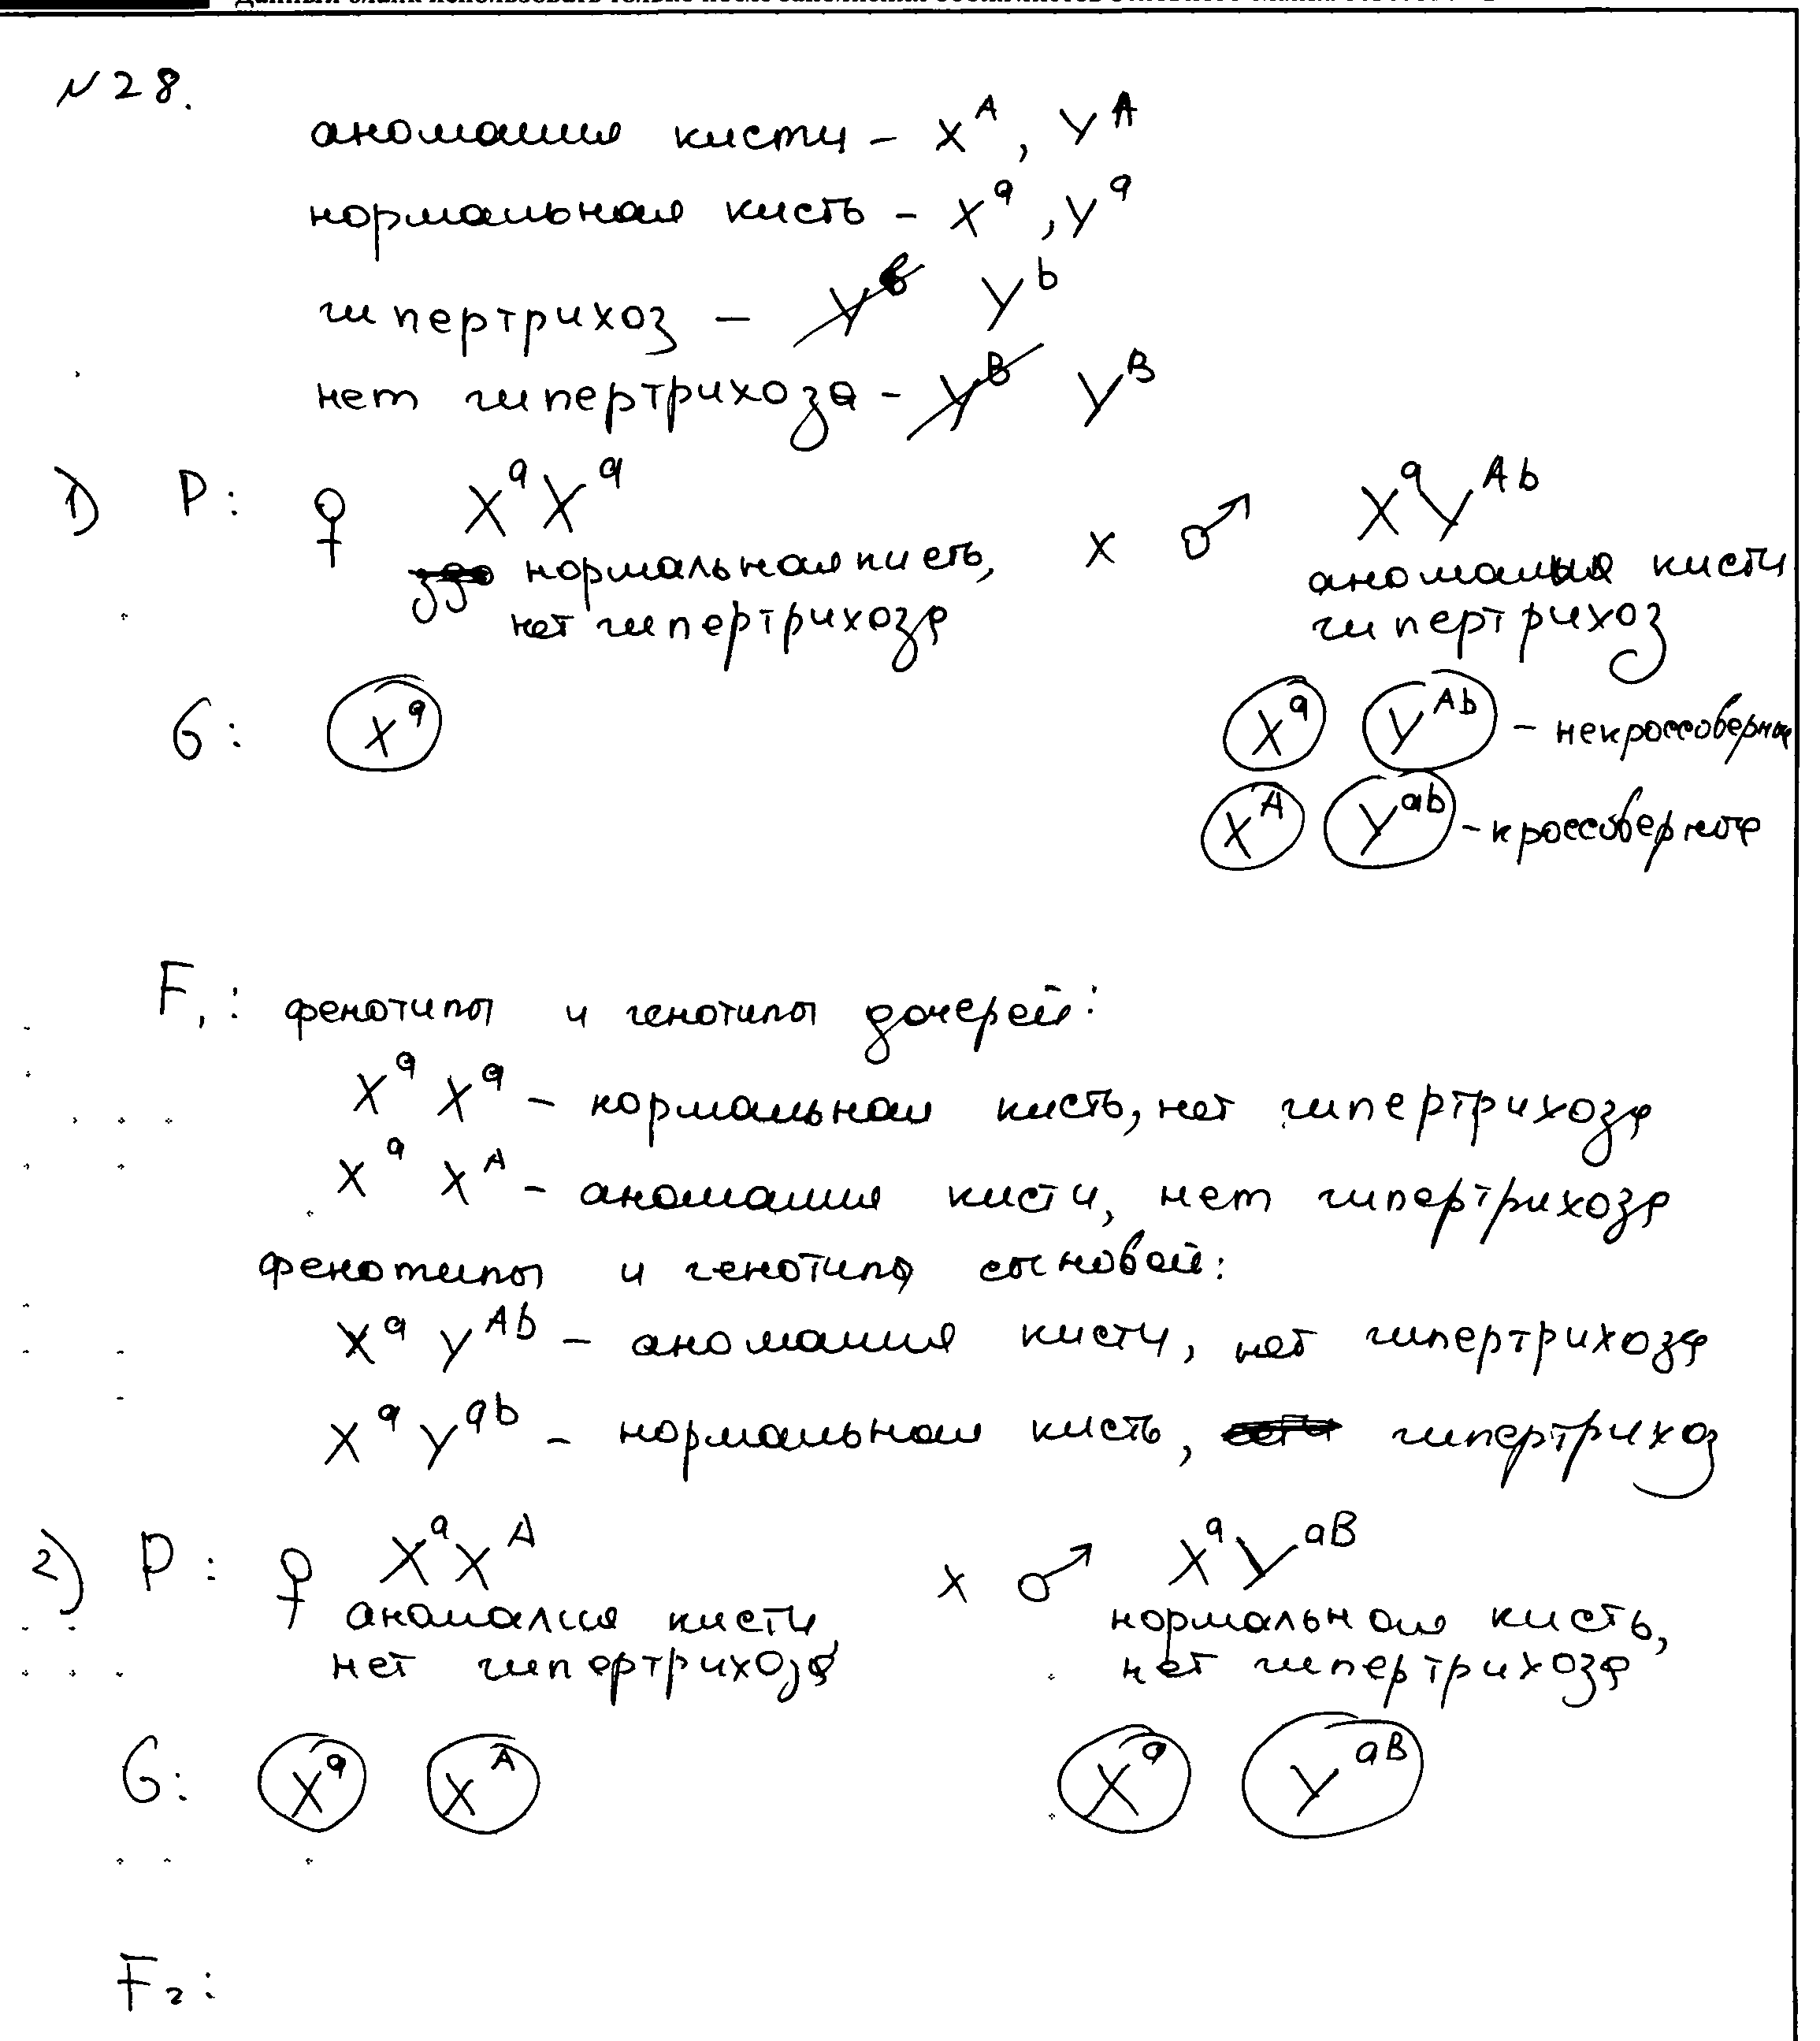 №28.
аномалия кисти – X^A, Y^A
нормальная кисть – X^a, Y^a
гипертрихоз – Y^b Y^b
нет гипертрихоза – Y^B Y^B
1) P: ♀ X^a X^a x ♂ X^a Y^Ab
нормальная кисть, аномалия кисти
нет гипертрихоза гипертрихоз
G: X^a X^a Y^Ab – некроссоверные
X^A Y^ab – кроссоверные
F₁: фенотипы и генотипы дочерей:
X^a X^a – нормальная кисть, нет гипертрихоза
X^a X^A – аномалия кисти, нет гипертрихоза
фенотипы и генотипы сыновей:
X^a Y^Ab – аномалия кисти, нет гипертрихоза
X^a Y^ab – нормальная кисть, гипертрихоз
2) P: ♀ X^a X^A x ♂ X^a Y^aB
аномалия кисти нормальная кисть,
нет гипертрихоза, нет гипертрихоза
G: X^a X^A X^a Y^aB
F₂: